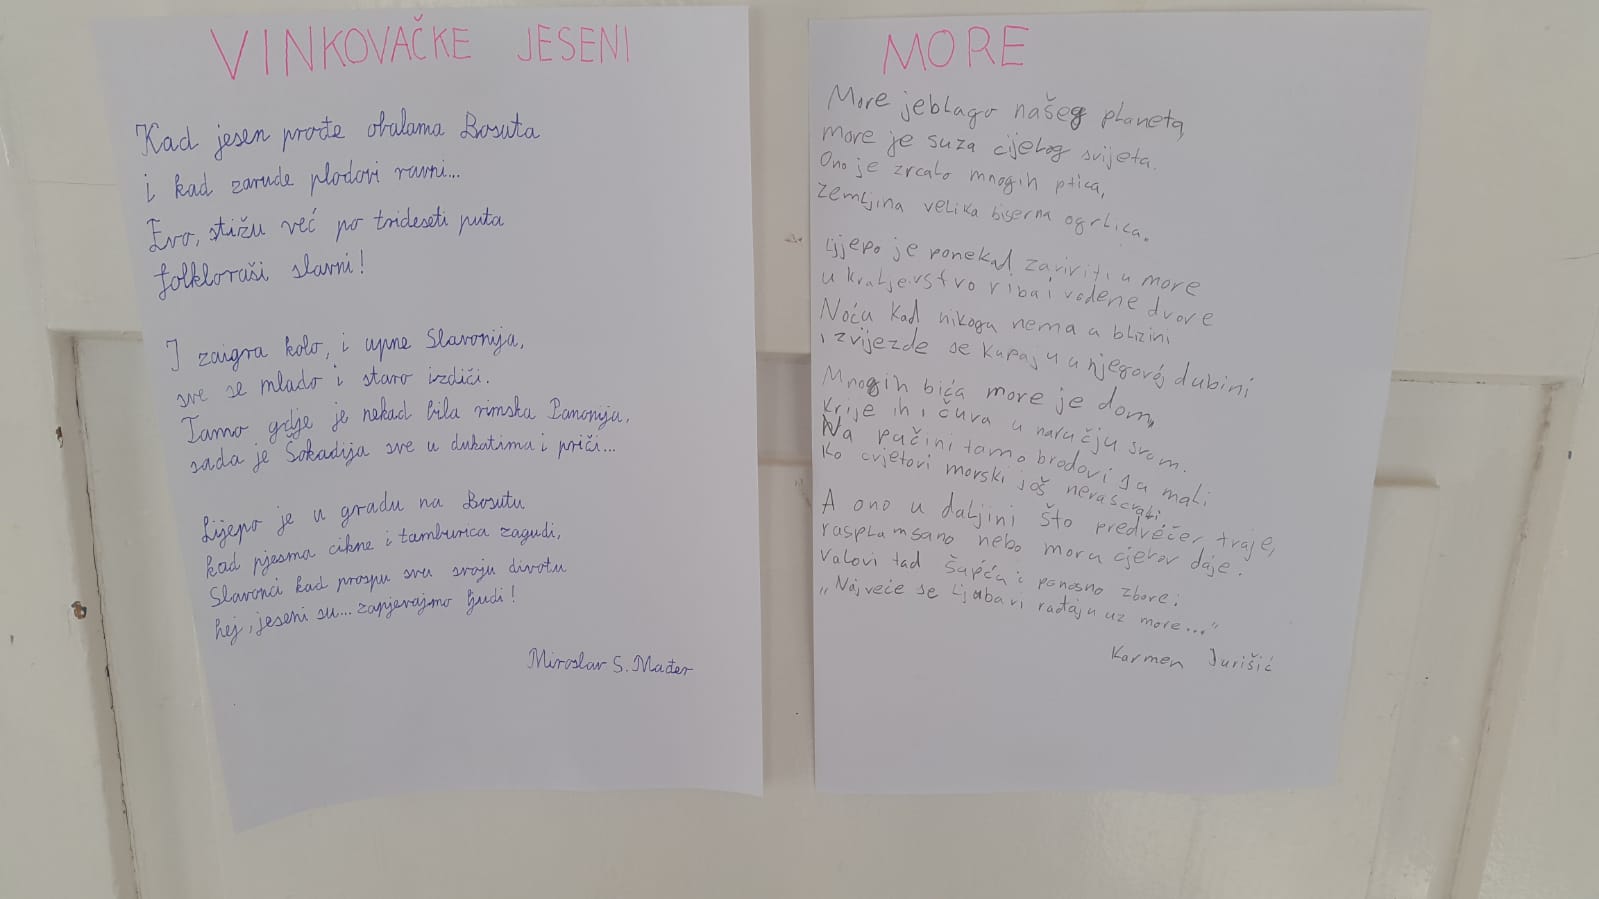 VINKOVAČKE JESENI
Kad jesen prođe obalama Bosuta
i kad zarude plodovi ravni...
Evo, stižu već po trideseti puta
folkloraši slavni!
I zaigra kolo, i upne Slavonija,
sve se mlado i staro izdiči.
Tamo gdje je nekad bila rimska Panonija,
sada je Šokadija sve u dukatima i priči...
Lijepo je u gradu na Bosutu
kad pjesma cikne i tamburica zagudi,
Slavonci kad prospu svu svoju divotu
hej, jeseni su... zapjevajmo ljudi!
Miroslav S. Mađer
MORE
More jeblago našeg planeta,
more je suza cijelog svijeta.
Ono je zrcalo mnogih ptica,
Zemljina velika biserna ogrlica.
Lijepo je ponekad zaviriti u more
u kraljevstvo riba i vodene dvore
Noću kad nikoga nema u blizini
i zvijezde se kupaju u njegovoj dubini
Mnogih bića more je dom,
Krije ih i čuva u naručju svom.
Na pučini tamo brodovi su mali
Ko cvjetovi morski još nerascvali.
A ono u daljini što predvečer traje,
rasplamsano nebo moru cjelov daje.
Valovi tad šapću i ponosno zbore:
„Najveće se ljubavi rađaju uz more..."
Karmen Jurišić